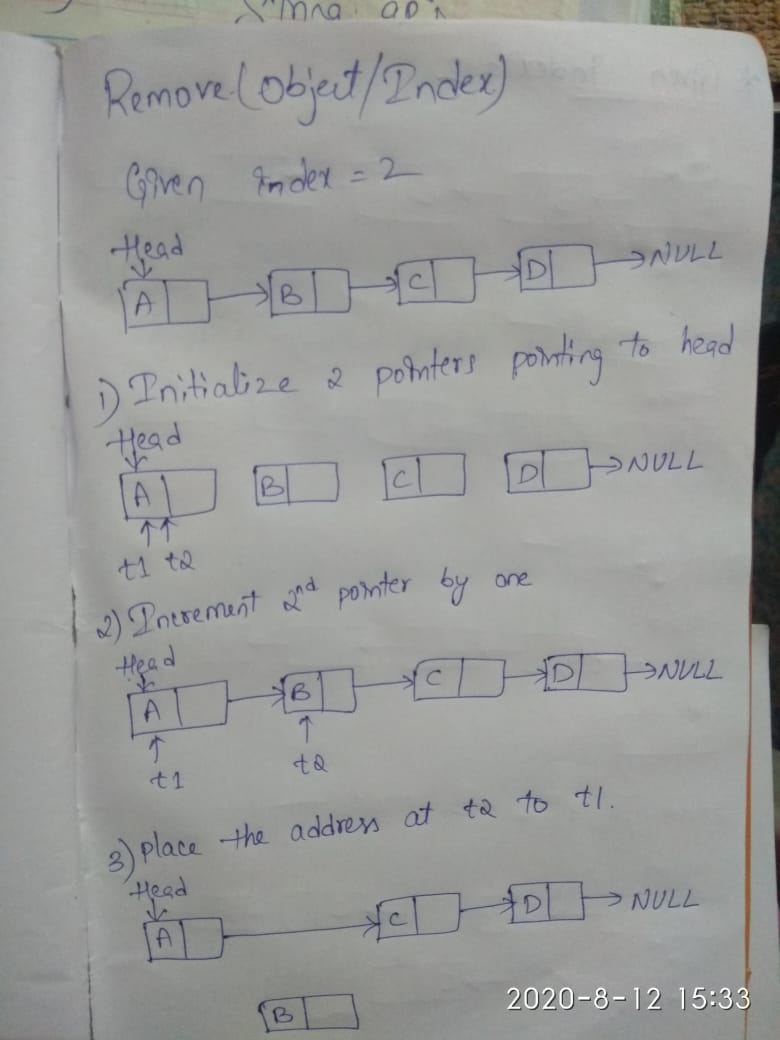 Remove(Object/Index)
Given Index = 2
Head
A B C D NULL
1) Initialize 2 pointers pointing to head
Head
A B C D NULL
t1 t2
2) Increment 2nd pointer by one
Head
A B C D NULL
t1 t2
3) place the address at t2 to t1.
Head
A C D NULL
B
2020-8-12 15:33